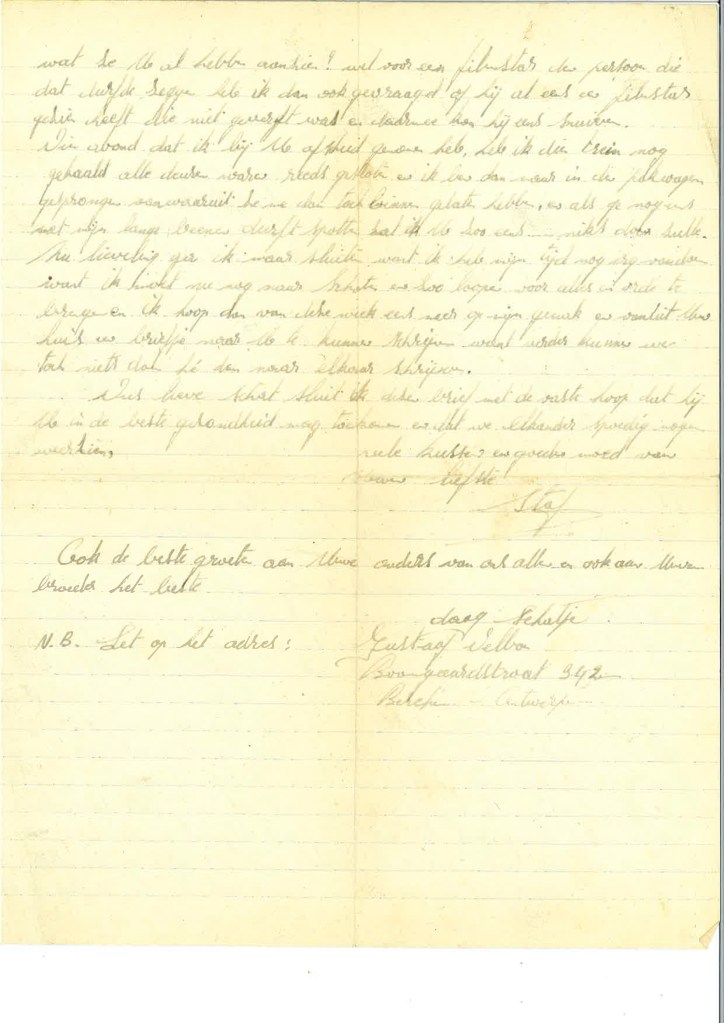 wat ze U al hebben aanzien? wel voor een filmstar den persoon die
dat durfde zeggen heb ik dan ook gevraagd of hij al eens een filmstar
gezien heeft die niet geverfd was en daarmee kon hij eens snuiven.
Dien avond dat ik bij U afscheid genomen heb, heb ik dien trein nog
gehaald alle deuren waren reeds gesloten en ik ben dan maar in den pakwagen
gesprongen van waaruit ze me dan toch binnen gelaten hebben, en als ge nog eens
met mijn lange beenen durft spotten zal ik U zoo eens ---- niks door
Nu lieveling ga ik maar sluiten want ik heb mijn tijd nog erg vandoen
want ik moet nu nog naar en zoo loopen voor alles in orde te
brengen en ik hoop dan van deze week eens meer op mijn gemak en vanuit
huis een briefje naar U te kunnen schrijven want verder kunnen we
toch niets dan hé dan naar elkaar schrijven.
Dus lieve schat sluit ik dezen brief met de vaste hoop dat hij
U in de beste gezondheid mag toekomen en dat we elkander spoedig mogen
weerzien. vele kussen en goeden moed van
uwen liefste
Staf
Ook de beste groeten aan Uwe ouders van ons allen en ook aan Uwen
broeder het beste
daag Schatje
N.B. Let op het adres: Gustaaf
Boomgaardstraat 342
Berchem - Antwerpen